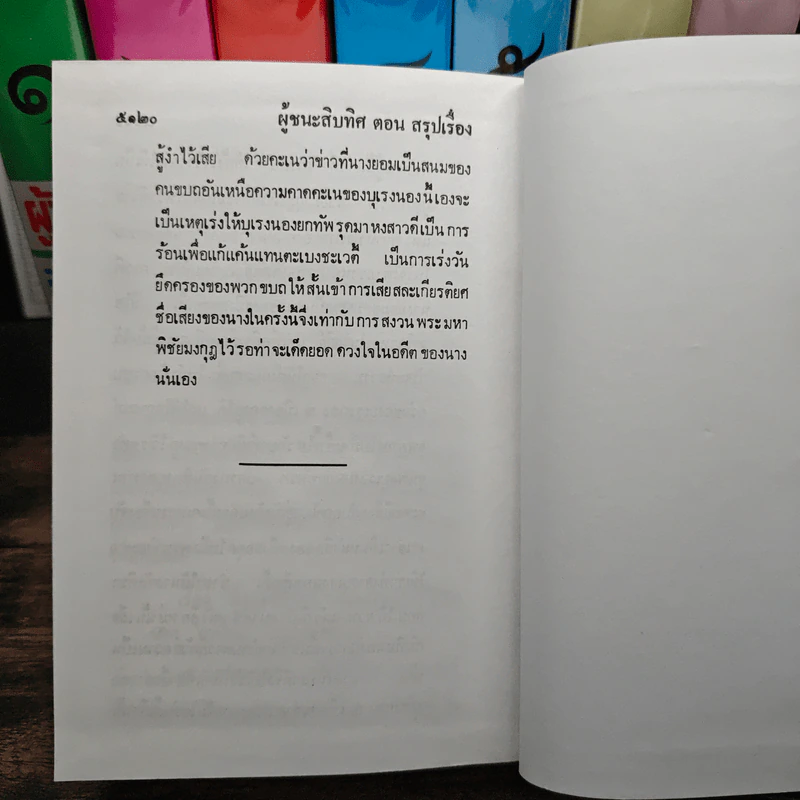 ๕๑๒๐ ผู้ชนะสิบทิศ ตอน สรุปเรื่อง
สู้งำไว้เสีย ด้วยคะเนว่าข่าวที่นางยอมเป็นสนมของ
คนขบถอันเหนือความคาดคะเนของบุเรงนองนี้เองจะ
เป็นเหตุเร่งให้บุเรงนองยกทัพรุดมาหงสาวดีเป็นการ
ร้อนเพื่อแก้แค้นแทนตะเบงชะเวตี้ เป็นการเร่งวัน
ยึดครองของพวกขบถให้สั้นเข้า การเสียสละเกียรติยศ
ชื่อเสียงของนางในครั้งนี้จึ่งเท่ากับการสงวนพระมหา
พิชัยมงกุฎไว้รอท่าจะเด็ดยอดดวงใจในอดีตของนาง
นั่นเอง